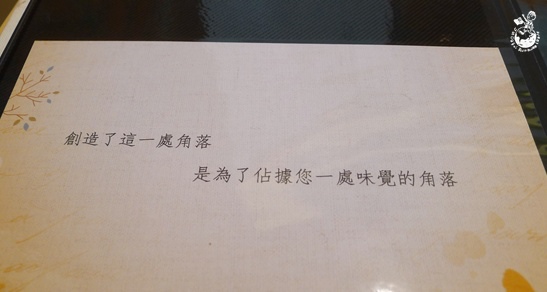 創造了這一處角落
是為了佔據您一處味覺的角落